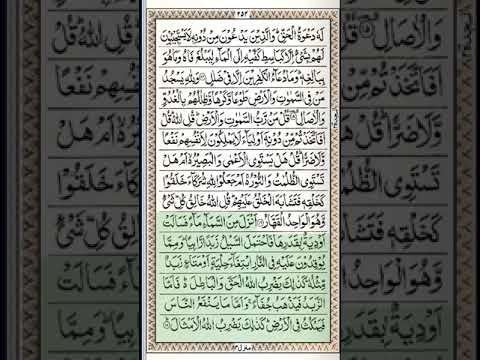 ٢٥٢
لَهٗ دَعْوَةُ الْحَقِّ وَالَّذِيْنَ يَدْعُوْنَ مِنْ دُوْنِهٖ لَا يَسْتَجِيْبُوْنَ
لَهُمْ بِشَيْءٍ اِلَّا كَبَاسِطِ كَفَّيْهِ اِلَى الْمَآءِ لِيَبْلُغَ فَاهُ وَمَا هُوَ
بِبَالِغِهٖ وَمَا دُعَآءُ الْكٰفِرِيْنَ اِلَّا فِيْ ضَلٰلٍ وَلِلّٰهِ يَسْجُدُ
مَنْ فِي السَّمٰوٰتِ وَالْاَرْضِ طَوْعًا وَّكَرْهًا وَّظِلٰلُهُمْ بِالْغُدُوِّ
وَالْاٰصَالِ قُلْ مَنْ رَّبُّ السَّمٰوٰتِ وَالْاَرْضِ قُلِ اللّٰهُ قُلْ
اَفَاتَّخَذْتُمْ مِّنْ دُوْنِهٖ اَوْلِيَآءَ لَا يَمْلِكُوْنَ لِاَنْفُسِهِمْ نَفْعًا
وَّلَا ضَرًّا قُلْ هَلْ يَسْتَوِي الْاَعْمٰى وَالْبَصِيْرُ اَمْ هَلْ
تَسْتَوِي الظُّلُمٰتُ وَالنُّوْرُ اَمْ جَعَلُوْا لِلّٰهِ شُرَكَآءَ خَلَقُوْا
كَخَلْقِهٖ فَتَشَابَهَ الْخَلْقُ عَلَيْهِمْ قُلِ اللّٰهُ خَالِقُ كُلِّ شَيْءٍ
وَّهُوَ الْوَاحِدُ الْقَهَّارُ اَنْزَلَ مِنَ السَّمَآءِ مَآءً فَسَالَتْ
اَوْدِيَةٌۢ بِقَدَرِهَا فَاحْتَمَلَ السَّيْلُ زَبَدًا رَّابِيًا وَمِمَّا
يُوْقِدُوْنَ عَلَيْهِ فِي النَّارِ ابْتِغَآءَ حِلْيَةٍ اَوْ مَتَاعٍ زَبَدٌ
مِّثْلُهٗ كَذٰلِكَ يَضْرِبُ اللّٰهُ الْحَقَّ وَالْبَاطِلَ فَاَمَّا
الزَّبَدُ فَيَذْهَبُ جُفَآءً وَاَمَّا مَا يَنْفَعُ النَّاسَ
فَيَمْكُثُ فِي الْاَرْضِ كَذٰلِكَ يَضْرِبُ اللّٰهُ الْاَمْثَالَ
منزل ٣